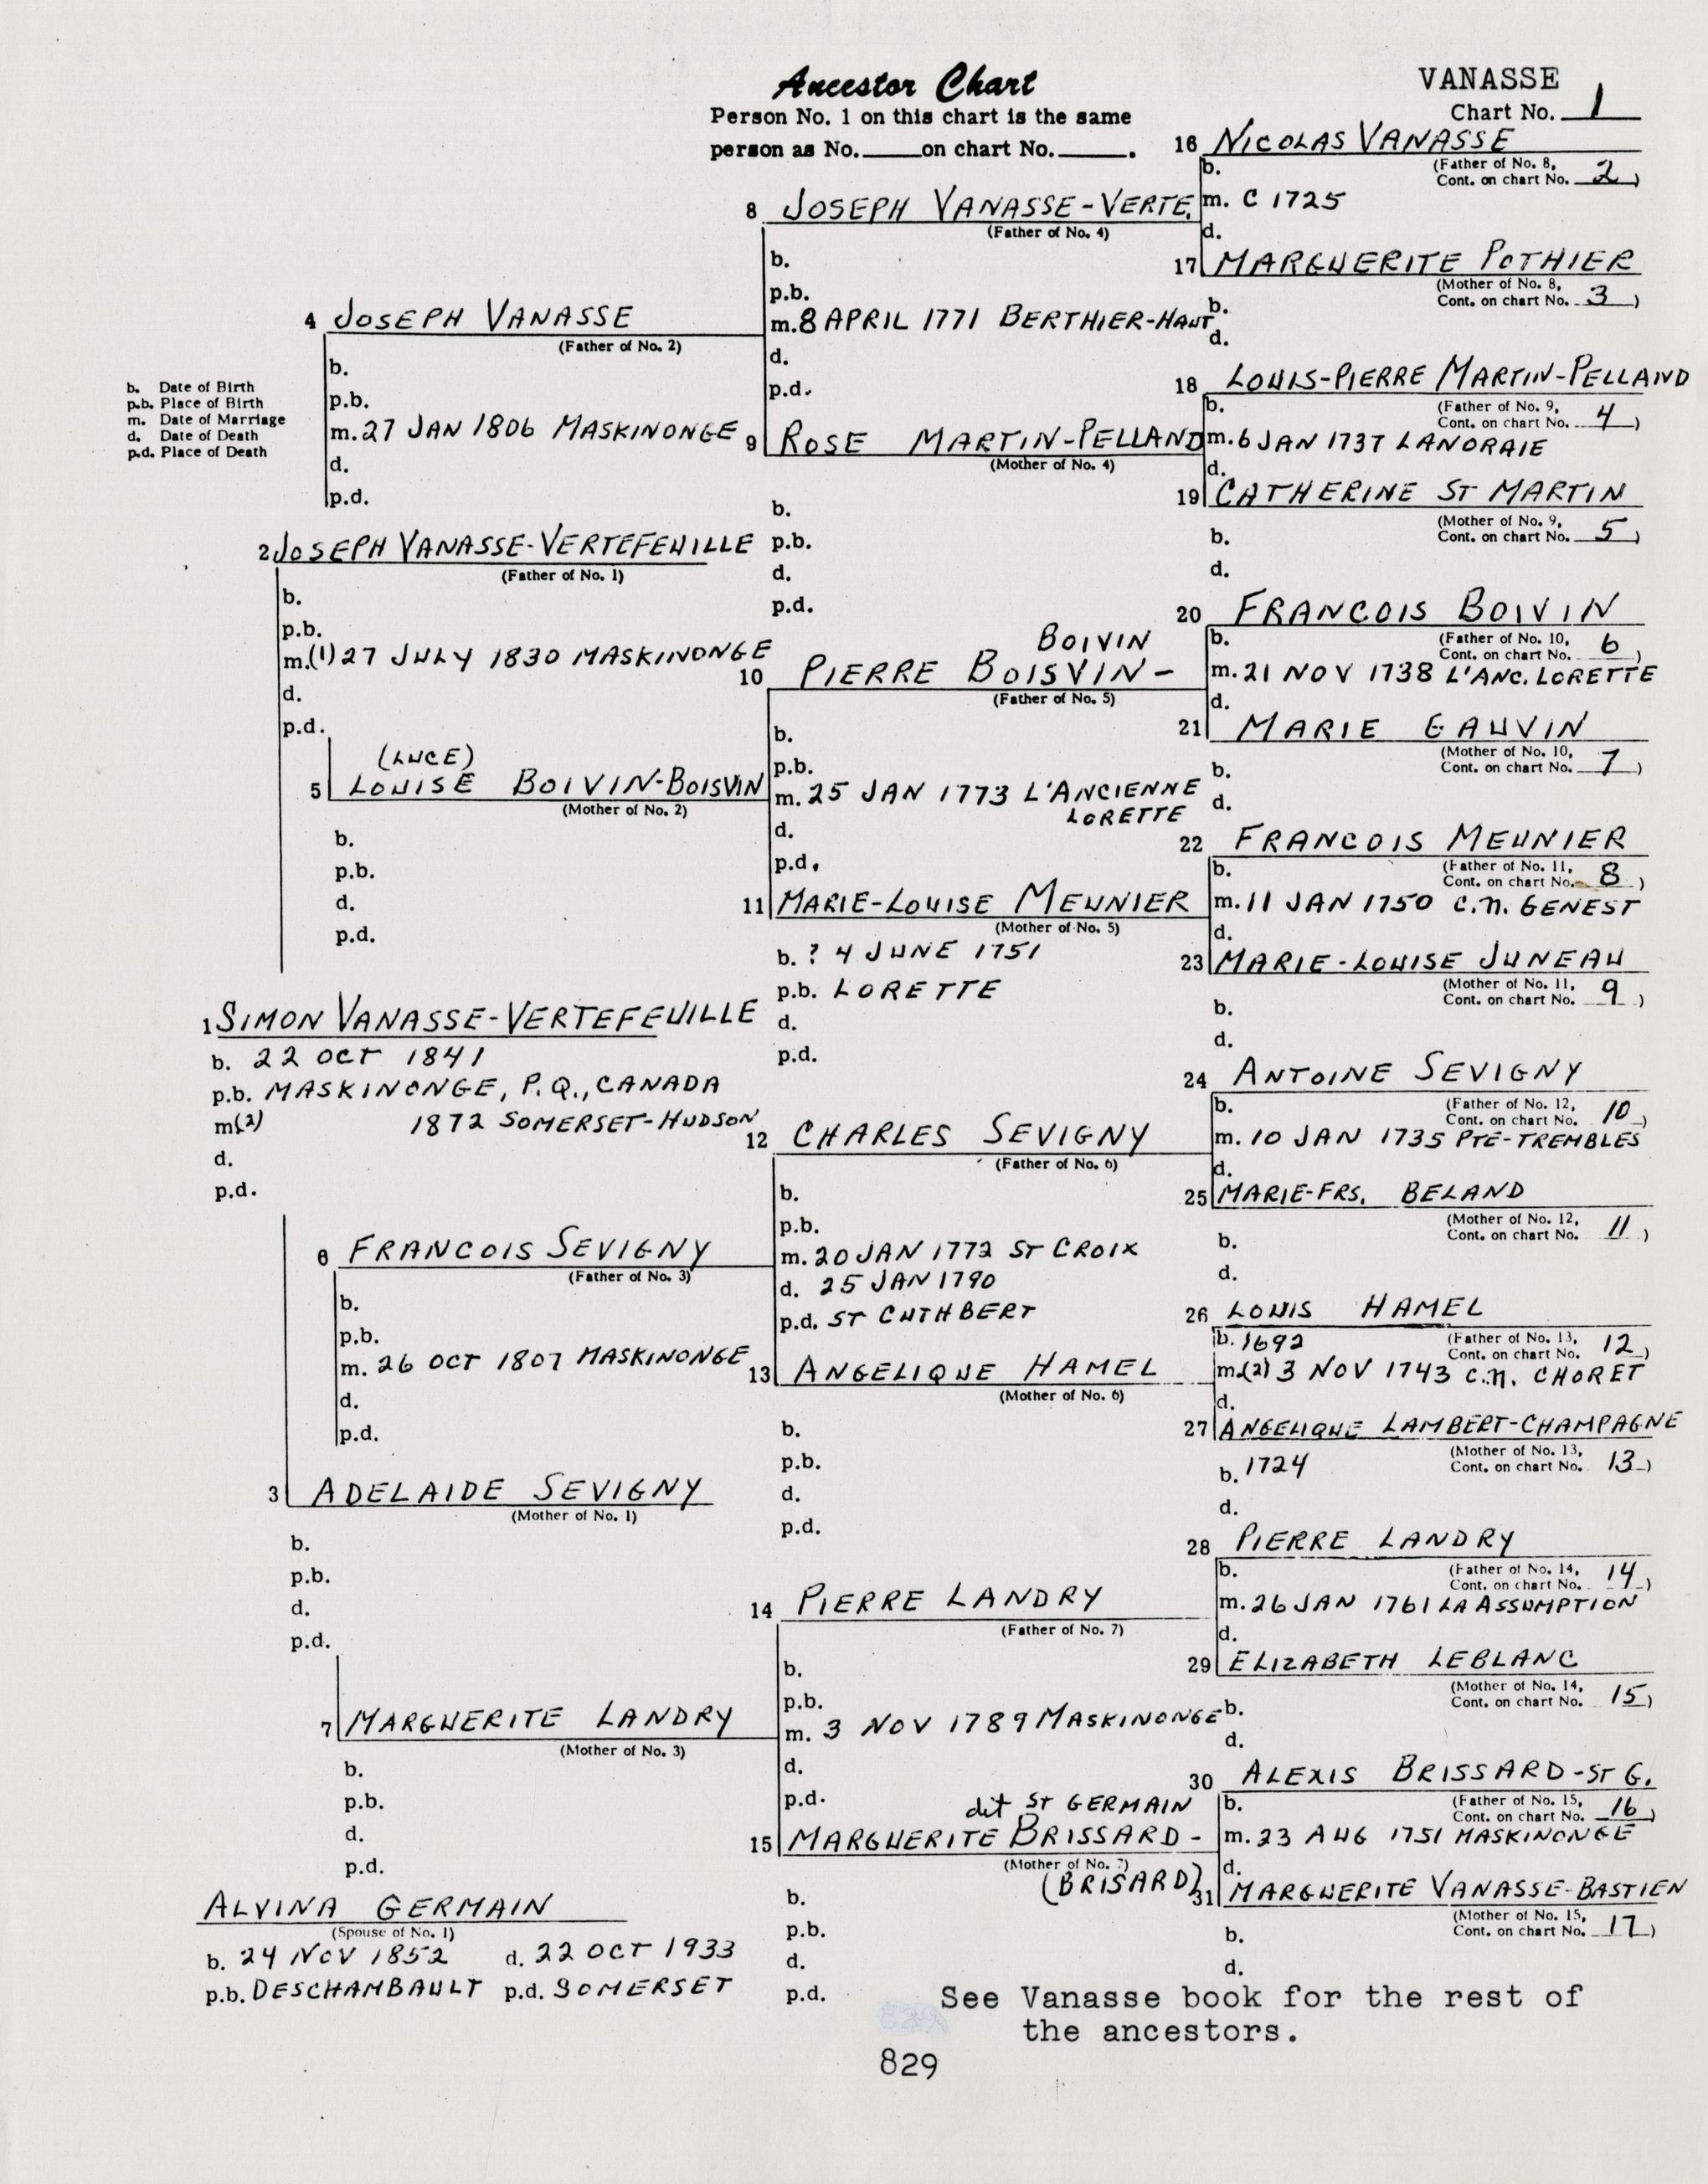 Ancestor Chart
Person No. 1 on this chart is the same
person as No. on chart No. .
VANASSE
Chart No. 1
16 NICOLAS VANASSE
(Father of No. 8,
b.
Cont. on chart No. 2 )
m. C 1725
d.
8 JOSEPH VANASSE-VERTE.
(Father of No. 4)
b.
p.b.
m. 8 APRIL 1771 BERTHIER-HAUT
d.
p.d.
17 MARGUERITE POTHIER
(Mother of No. 8,
Cont. on chart No. 3 )
b.
d.
4 JOSEPH VANASSE
(Father of No. 2)
b.
p.b.
m. 27 JAN 1806 MASKINONGE
d.
p.d.
b. Date of Birth
p.b. Place of Birth
m. Date of Marriage
d. Date of Death
p.d. Place of Death
18 LOUIS-PIERRE MARTIN-PELLAND
b.
(Father of No. 9,
Cont. on chart No. 4 )
m. 6 JAN 1737 LANORAIE
d.
9 ROSE MARTIN-PELLAND
(Mother of No. 4)
b.
p.b.
d.
p.d.
19 CATHERINE ST MARTIN
(Mother of No. 9,
Cont. on chart No. 5 )
b.
d.
2 JOSEPH VANASSE-VERTEFEUILLE
(Father of No. 1)
b.
p.b.
m.(1) 27 JULY 1830 MASKINONGE
d.
p.d.
20 FRANCOIS BOIVIN
b.
(Father of No. 10,
Cont. on chart No. 6 )
m. 21 NOV 1738 L'ANC. LORETTE
d.
BOIVIN
10 PIERRE BOISVIN-
(Father of No. 5)
b.
p.b.
m. 25 JAN 1773 L'ANCIENNE
LORETTE
d.
p.d.
21 MARIE GAUVIN
(Mother of No. 10,
Cont. on chart No. 7 )
b.
d.
(LUCE)
5 LOUISE BOIVIN-BOISVIN
(Mother of No. 2)
b.
p.b.
d.
p.d.
22 FRANCOIS MEUNIER
b.
(Father of No. 11,
Cont. on chart No. 8 )
m. 11 JAN 1750 C.N. GENEST
d.
11 MARIE-LOUISE MEUNIER
(Mother of No. 5)
b. ? 4 JUNE 1751
p.b. LORETTE
d.
p.d.
23 MARIE-LOUISE JUNEAU
(Mother of No. 11,
Cont. on chart No. 9 )
b.
d.
1 SIMON VANASSE-VERTEFEUILLE
b. 22 OCT 1841
p.b. MASKINONGE, P.Q., CANADA
m(2) 1872 SOMERSET-HUDSON
d.
p.d.
24 ANTOINE SEVIGNY
b.
(Father of No. 12,
Cont. on chart No. 10 )
m. 10 JAN 1735 PTE-TREMBLES
d.
12 CHARLES SEVIGNY
(Father of No. 6)
b.
p.b.
m. 20 JAN 1772 ST CROIX
d. 25 JAN 1790
p.d. ST CUTHBERT
25 MARIE-FRS. BELAND
(Mother of No. 12,
Cont. on chart No. 11 )
b.
d.
6 FRANCOIS SEVIGNY
(Father of No. 3)
b.
p.b.
m. 26 OCT 1807 MASKINONGE
d.
p.d.
26 LOUIS HAMEL
b. 1692
(Father of No. 13,
Cont. on chart No. 12 )
m.(2) 3 NOV 1743 C.N. CHORET
d.
13 ANGELIQUE HAMEL
(Mother of No. 6)
b.
p.b.
d.
p.d.
27 ANGELIQUE LAMBERT-CHAMPAGNE
(Mother of No. 13,
Cont. on chart No. 13 )
b. 1724
d.
3 ADELAIDE SEVIGNY
(Mother of No. 1)
b.
p.b.
d.
p.d.
28 PIERRE LANDRY
b.
(Father of No. 14,
Cont. on chart No. 14 )
m. 26 JAN 1761 LA ASSUMPTION
d.
14 PIERRE LANDRY
(Father of No. 7)
b.
p.b.
m. 3 NOV 1789 MASKINONGE
d.
p.d.
29 ELIZABETH LEBLANC
(Mother of No. 14,
Cont. on chart No. 15 )
b.
d.
7 MARGUERITE LANDRY
(Mother of No. 3)
b.
p.b.
d.
p.d.
30 ALEXIS BRISSARD-ST G.
b.
(Father of No. 15,
Cont. on chart No. 16 )
m. 23 AUG 1751 MASKINONGE
d.
dit ST GERMAIN
15 MARGUERITE BRISSARD-
(Mother of No. 7)
(BRISARD)
b.
p.b.
d.
p.d.
31 MARGUERITE VANASSE-BASTIEN
(Mother of No. 15,
Cont. on chart No. 17 )
b.
d.
ALVINA GERMAIN
(Spouse of No. 1)
b. 24 NOV 1852 d. 22 OCT 1933
p.b. DESCHAMBAULT p.d. SOMERSET
See Vanasse book for the rest of
the ancestors.
829